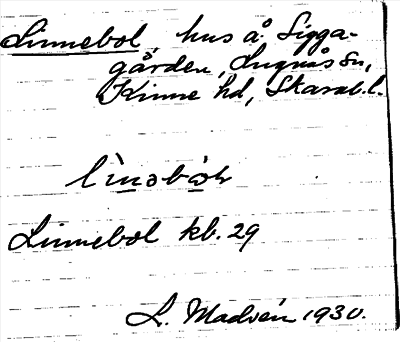 Linnebol, hus å Sigga-
gården, Lugnås sn,
Kinne hd, Skarab.l.
Linnebol kb. 29
L. Madsén 1930.